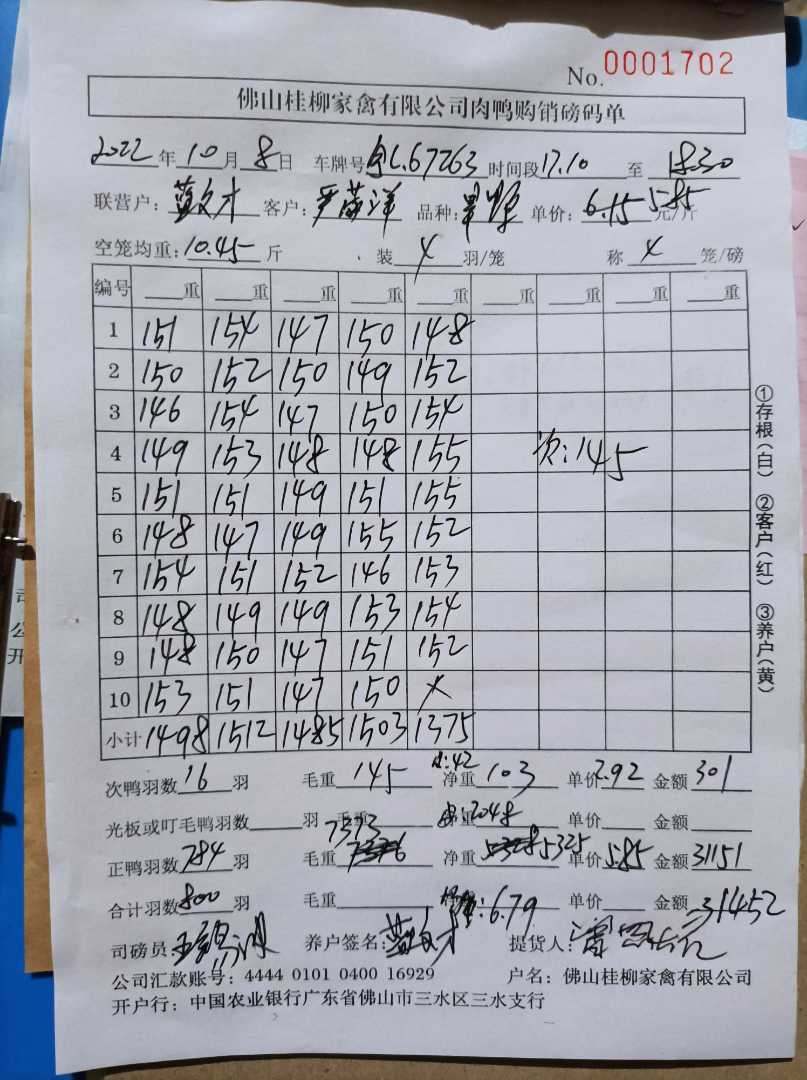 No. 0001702
佛山桂柳家禽有限公司肉鸭购销磅码单
2022年10月8日 车牌号粤L.67263 时间段17.10至18.30
联营户：蓝文才 客户：严 洋 品种： 单价：6.15 5.85元/斤
空笼均重：10.45斤 装X羽/笼 称X笼/磅
编号 重 重 重 重 重 重 重 重 重
1 151 154 147 150 148
2 150 152 150 149 152
3 146 154 147 150 154
4 149 153 148 148 155 次：145
5 151 151 149 151 155
6 148 147 149 155 152
7 154 151 152 146 153
8 148 149 149 153 154
9 148 150 147 151 152
10 153 151 147 150 X
小计 1498 1512 1485 1503 1375
次鸭羽数16羽 毛重145 :42 净重103 单价2.92 金额301
光板或叮毛鸭羽数 羽 毛重 :2048 净重 单价 金额
正鸭羽数784羽 毛重7373 净重5325 单价5.85 金额31151
合计羽数800羽 毛重 :6.79 单价 金额31452
司磅员： 养户签名：蓝文才 提货人：
公司汇款账号：4444 0101 0400 16929 户名：佛山桂柳家禽有限公司
开户行：中国农业银行广东省佛山市三水区三水支行
①存根(白) ②客户(红) ③养户(黄)